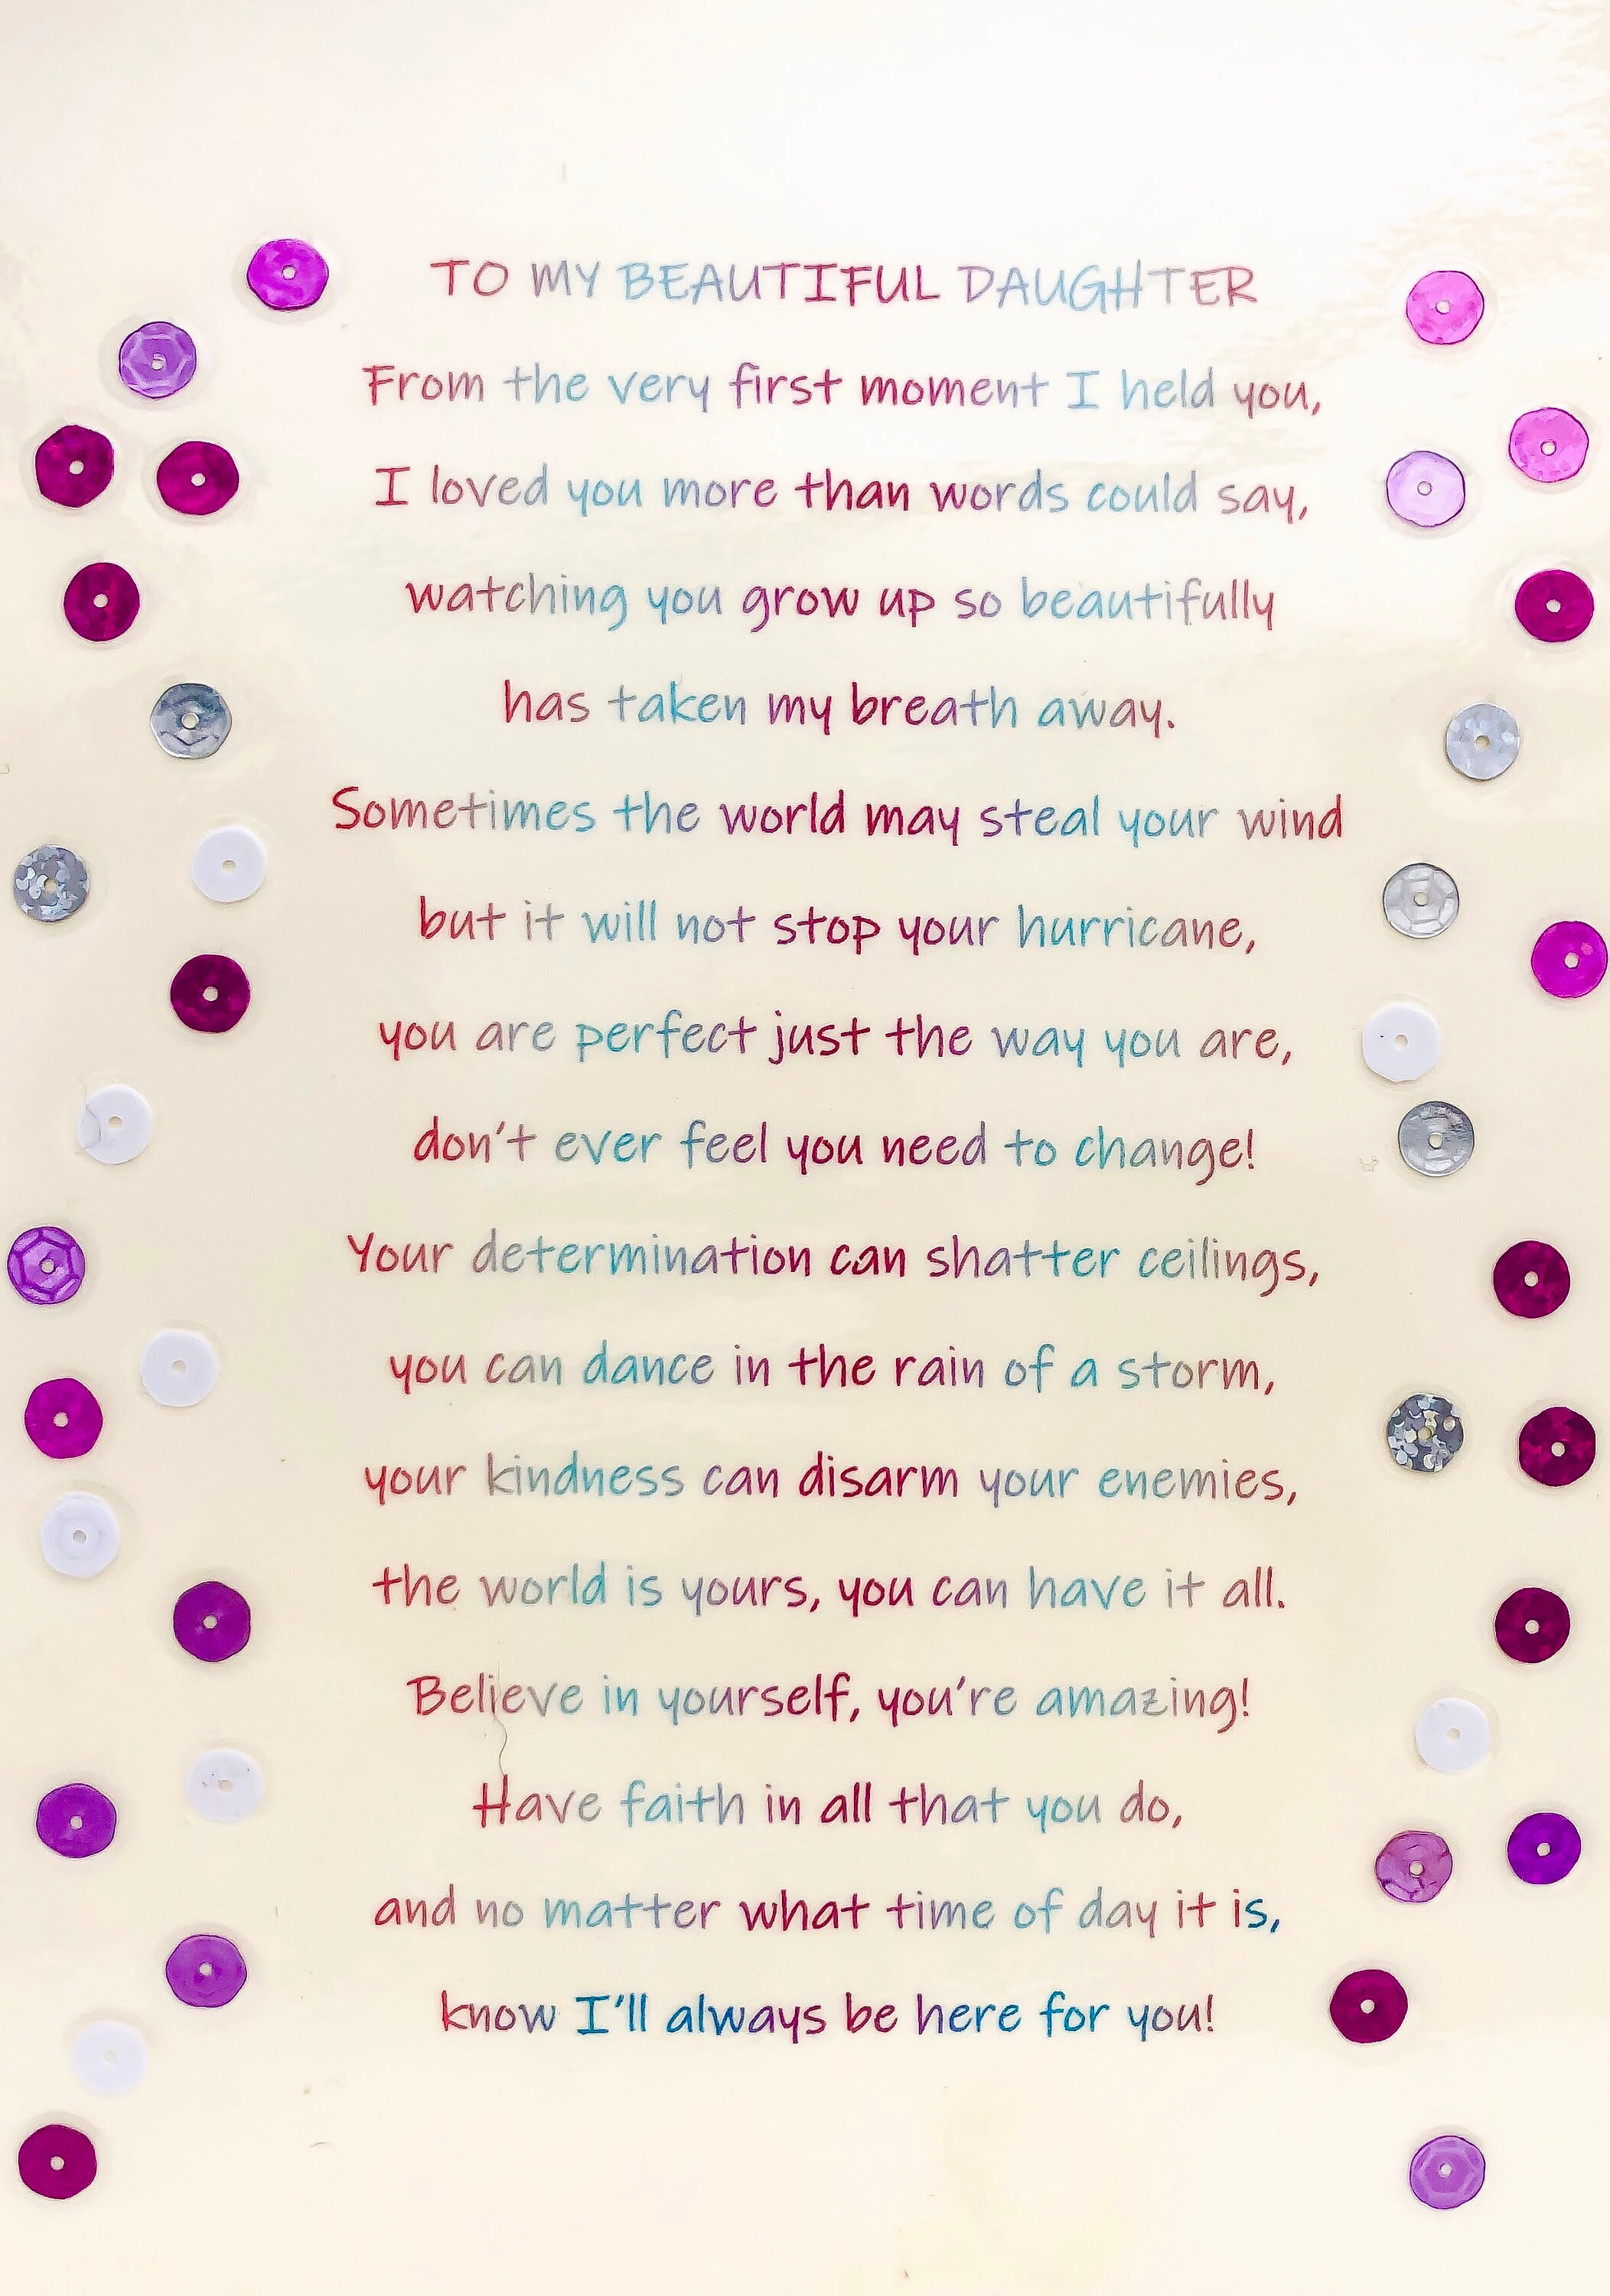 TO MY BEAUTIFUL DAUGHTER
From the very first moment I held you,
I loved you more than words could say,
watching you grow up so beautifully
has taken my breath away.
Sometimes the world may steal your wind
but it will not stop your hurricane,
you are perfect just the way you are,
don't ever feel you need to change!
Your determination can shatter ceilings,
you can dance in the rain of a storm,
your kindness can disarm your enemies,
the world is yours, you can have it all.
Believe in yourself, you're amazing!
Have faith in all that you do,
and no matter what time of day it is,
know I'll always be here for you!